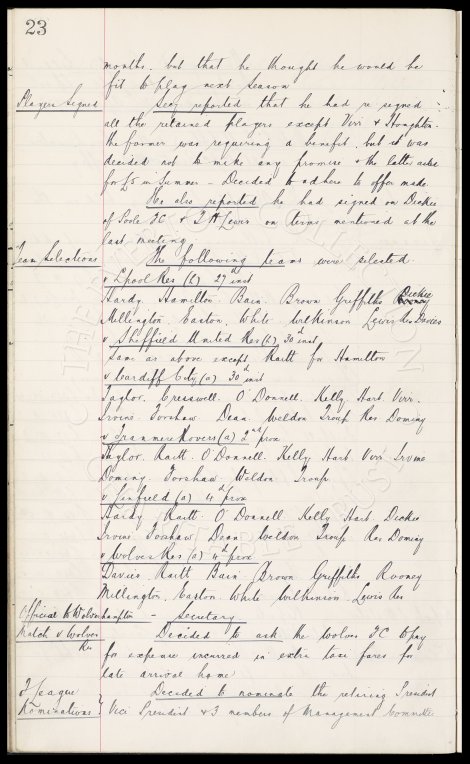 23
months. but that he thought he would be
fit to play next season
Players Signed
Secy reported that he had re signed
all the retained players except Virr & Houghton.
the former was requiring a benefit. but it was
decided not to make any promise & the latter asks
for £5 in Summer - Decided to adhere to offer made.
He also reported he had signed on Dickie
of Poole FC & T H Lewis on terms mentioned at the
last meeting
Team Selections
The following teams were selected
v Lpool Res (h) 27th inst
Hardy. Hamilton. Bain. Brown Griffiths Dickie
Millington. Easton. White Wilkinson Lewis Res Davies
v Sheffield United Res (h) 30th inst
Same as above except Raitt for Hamilton
v Cardiff City (a) 30th inst
Taylor. Cresswell. O'Donnell. Kelly Hart. Virr.
Irvine. Forshaw. Dean. Weldon Troup Res Dominy
v Tranmere Rovers (a) 2nd prox
Taylor. Raitt. O'Donnell. Kelly Hart Virr Irvine
Dominy. Forshaw. Weldon. Troup
v Linfield (a) 4th prox
Hardy Raitt. O'Donnell Kelly Hart. Dickie
Irvine Forshaw Dean Weldon Troup Res Dominy
v Wolves Res (a) 4th prox
Davies. Raitt Bain. Brown Griffiths Rooney
Millington. Easton. White Wilkinson. Lewis Res
Official to Wolverhampton - Secretary
Match v Wolves
Res
Decided to ask the Wolves FC to pay
for expense incurred in extra taxi fares for
late arrival home
F League
Nominations
Decided to nominate the retiring President
Vice President & 3 members of Management Committee